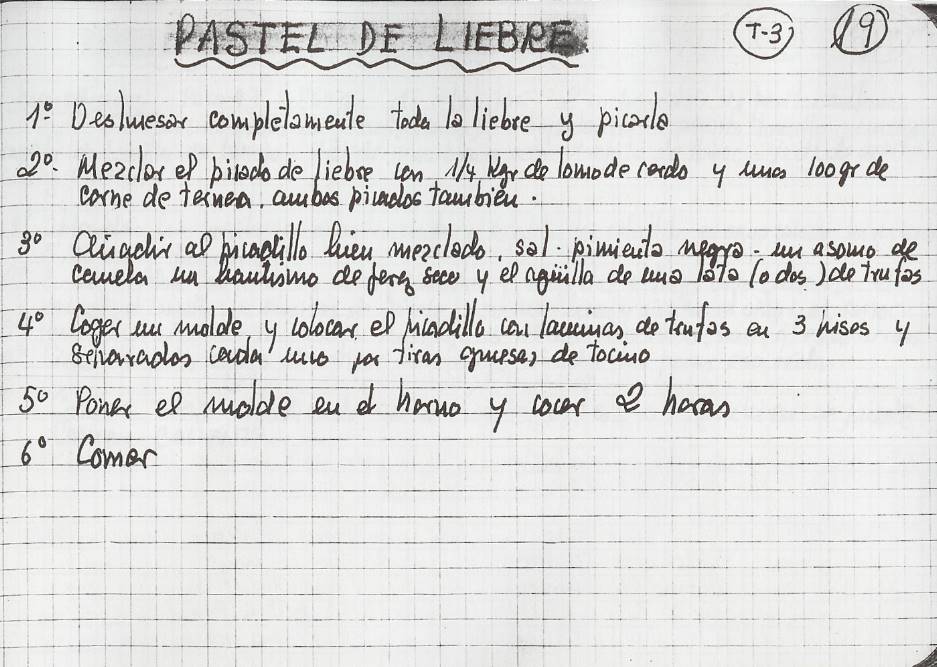 PASTEL DE LIEBRE T-3 19
1º Deshuesar completamente toda la liebre y picarla
2º. Mezclar el picado de liebre con 1/4 Kgr de lomo de cerdo y unos 100 gr de
carne de ternera, ambos picados también.
3º Añadir al picadillo bien mezclado, sal. pimienta negra - un asomo de
canela un bautismo de jerez seco y el agüilla de una lata (o dos) de trufas
4º Coger un molde y colocar el picadillo con laminas de trufas en 3 pisos y
separados cada uno por tiras gruesas de tocino
5º Poner el molde en el horno y cocer 2 horas
6º Comer